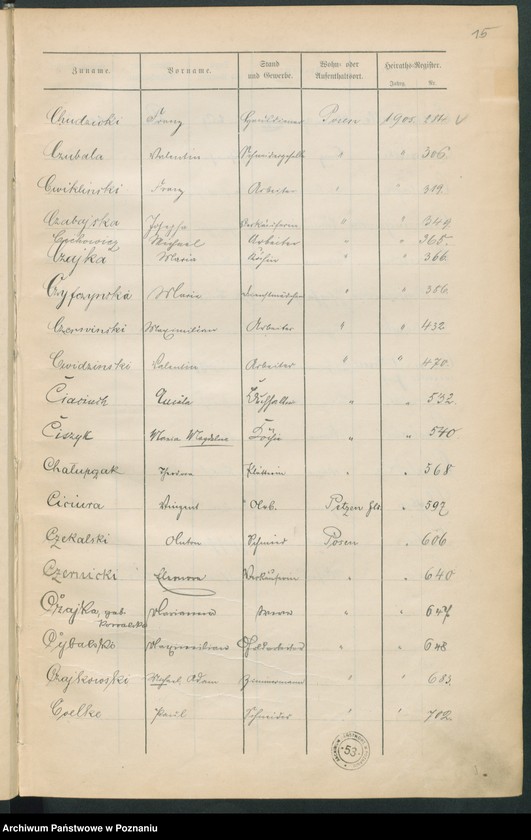 15
Zuname. Vorname. Stand und Gewerbe. Wohn- oder Aufenthaltsort. Heiraths-Register. Jahrg. Nr.
Chudzicki Franz Posen 1905. 284. V
Czubala Valentin Schneidergeselle " " 306.
Cwiklinski Franz Arbeiter " " 319.
Czabajska Josepha Verkäuferin " " 349.
Cichorowicz Michael Arbeiter " " 365.
Czajka Maria Köchin " " 366.
Marie Dienstmädchen " " 386.
Czerwinski Maximilian Arbeiter " " 432
Cwidzinski Valentin Arbeiter " " 470.
Buchhalter " " 532
Ciszyk Maria Magdalena Köchin " " 540
Chalupzak Theodora Plätterin " " 568
Ciciura Vinzent Arb. " 592
Czekalski Anton Schmied Posen " 606
Czernicki Eleonora Verkäuferin " " 640
Czajka, geb Kowalska Marianna Witwe " " 647
Cybalski Maximilian " " 648.
Czajkowski Michael Adam Zimmermann " " 683.
Coelke Paul Schneider " " 702
53
Archiwum Państwowe w Poznaniu